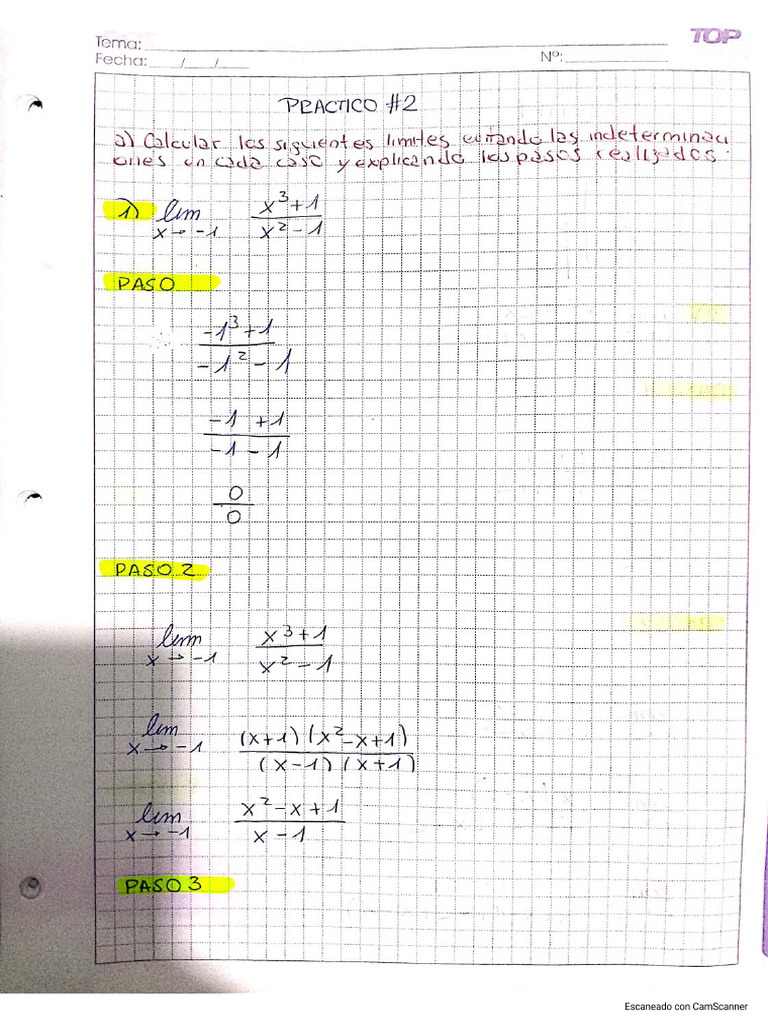 TOP
Tema:
Fecha: / / Nº:
PRACTICO #2
a) Calcular los siguientes limites evitando las indeterminaci
ones en cada caso y explicando los pasos realizados.
1) lim x→-1 x³+1 / x²-1
PASO
-1³+1 / -1²-1
-1 +1 / -1-1
0 / 0
PASO 2
lim x→-1 x³+1 / x²-1
lim x→-1 (x+1)(x²-x+1) / (x-1)(x+1)
lim x→-1 x²-x+1 / x-1
PASO 3
Escaneado con CamScanner